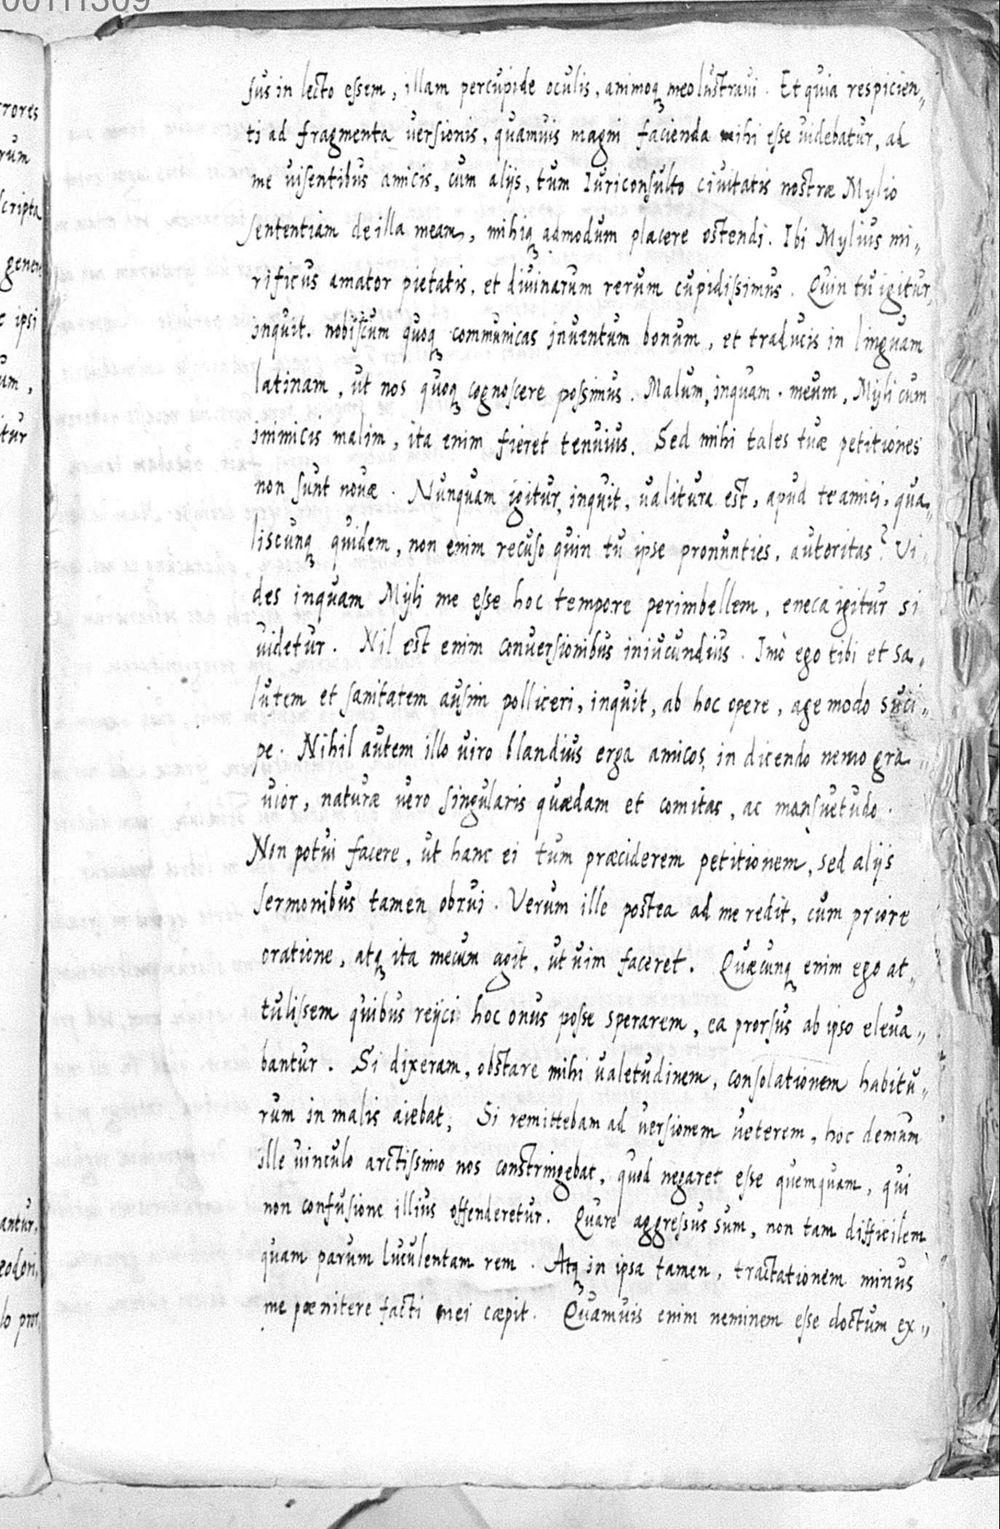 00111309
sus in lecto essem, illam percupide oculis, animoq meo lustraui. Et quia respicien,,
ti ad fragmenta uersionis, quamuis magni facienda mihi esse uidebatur, ad
me uisentibus amicis, cum alijs, tum Iuriconsulto ciuitatis nostræ Mylio
sententiam de illa meam, mihiq admodum placere ostendi. Ibi Mylius mi,,
rificus amator pietatis, et diuinarum rerum cupidissimus. Quin tu igitur,
inquit. nobiscum quoq communicas inuentum bonum, et traducis in linguam
latinam, ut nos quoq cognoscere possimus. Malum, inquam. meum, Myli cum
inimicis malim, ita enim fieret tenuius. Sed mihi tales tuæ petitiones
non sunt nouæ. Nunquam igitur, inquit, ualitura est, apud te amici, qua,,
liscunq quidem, non enim recuso quin tu ipse pronunties, autoritas? Vi,,
des inquam Myli me esse hoc tempore perimbellem, eneca igitur si
uidetur. Nil est enim conuersionibus iniucundius. Imò ego tibi et sa,,
lutem et sanitatem ausim polliceri, inquit, ab hoc opere, age modo susci,,
pe. Nihil autem illo uiro blandius erga amicos, in dicendo nemo gra,,
uior, naturæ uero singularis quædam et comitas, ac mansuetudo.
Non potui facere, ut hanc ei tum præciderem petitionem, sed alijs
sermonibus tamen obrui. Verum ille postea ad me redit, cum priore
oratione, atq ita mecum agit, ut uim faceret. Quæcunq enim ego at,,
tulissem quibus reijci hoc onus posse sperarem, ea prorsus ab ipso eleua,,
bantur. Si dixeram, obstare mihi ualetudinem, consolationem habitu,,
rum in malis aiebat, Si remittebam ad uersionem ueterem, hoc demum
ille uinculo arctissimo nos constringebat, quod negaret esse quemquam, qui
non confusione illius offenderetur. Quare aggressus sum, non tam difficilem
quam parum luculentam rem. Atq in ipsa tamen, tractationem minus
me pœnitere facti mei cæpit. Quamuis enim neminem esse doctum ex,,